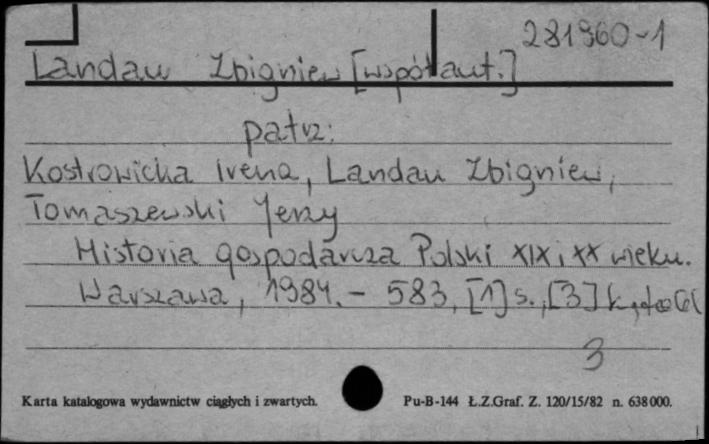 281960-1
Landau Zbigniew [współaut.]
patrz:
Kostrowicka Irena, Landau Zbigniew,
Tomaszewski Jerzy
Historia gospodarcza Polski XIX i XX wieku.
Warszawa, 1984. - 583, [1] s., [3] k.
3
Karta katalogowa wydawnictw ciągłych i zwartych.
Pu-B-144 Ł.Z.Graf. Z. 120/15/82 n. 638 000.